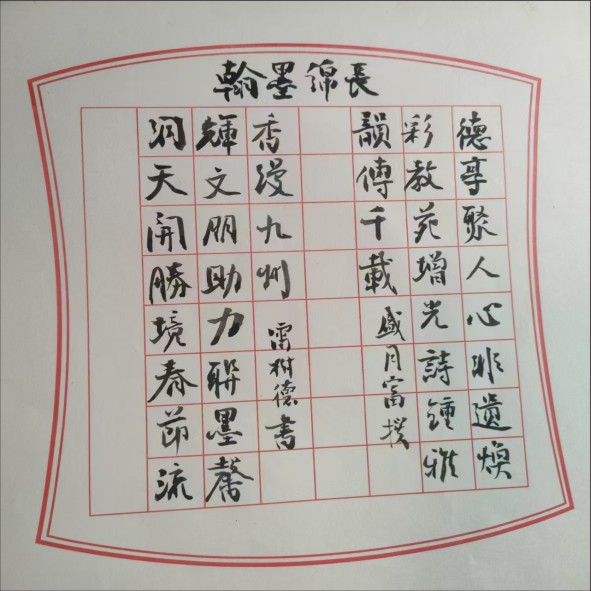 翰墨綿長
德享聚人心非遺煥
彩教苑增光詩鍾雅
韻傳千載
盛月富撰
洞天開勝境春節流
輝文朋助力聯墨馨
香漫九州
雷樹德書